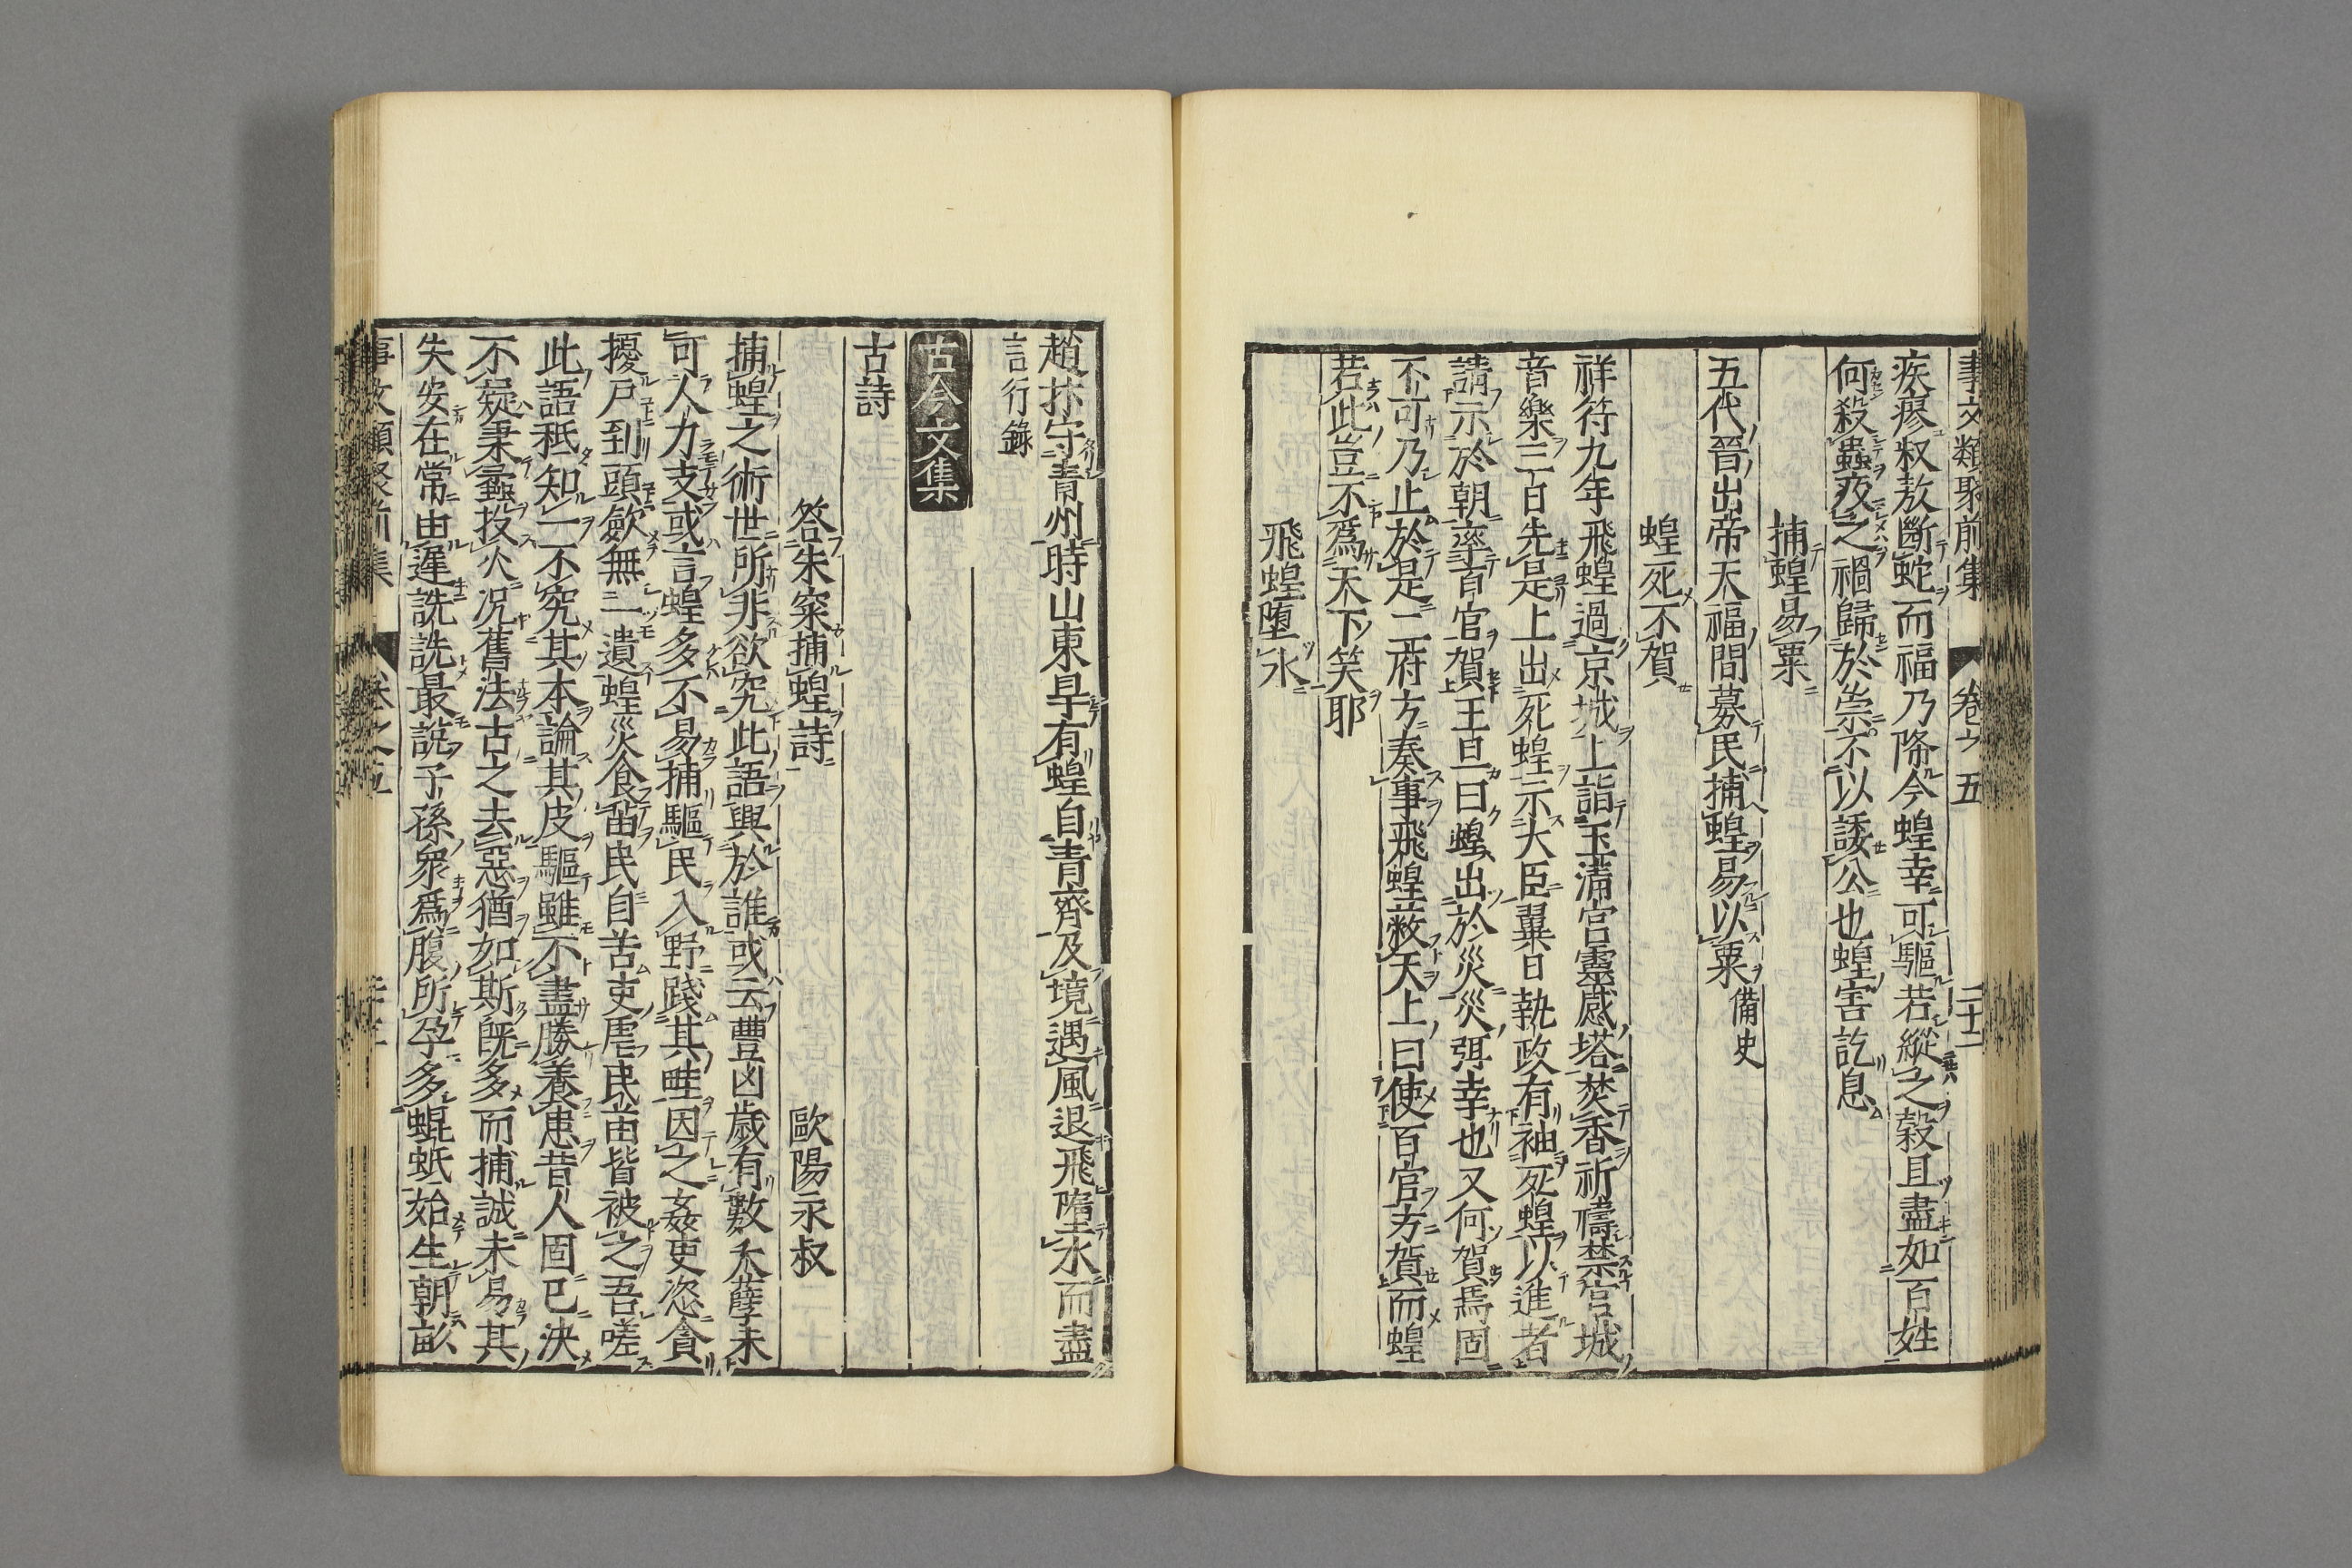 事文類聚前集 卷之五 二十二
疾瘳叔敖斷蛇而福乃降今蝗幸可驅若縱之穀且盡如百姓
何殺蟲疫之禍歸於崇不以諉公也蝗害訖息
捕蝗易粟
五代晉出帝天福間募民捕蝗易以粟 備史
蝗死不賀
祥符九年飛蝗過京城上詣玉清宮靈感塔焚香祈禱禁宮城
音樂三日先是上出死蝗示大臣翼日執政有袖死蝗以進者
請示於朝率百官賀王旦曰蝗出於災災弭幸也又何賀焉固
不可乃止於是二府方奏事飛蝗蔽天上曰使百官方賀而蝗
若此豈不爲天下笑耶
飛蝗墮水
趙抃守青州時山東旱有蝗自青齊及境遇風退飛墮水而盡
言行錄
古今文集
古詩
答朱寀捕蝗詩 歐陽永叔
捕蝗之術世所非欲究此語興於誰或云豐凶歲有數天孽未
可人力支或言蝗多不易捕驅民入野踐其畦因之姦吏恣貪
擾戸到頭歛無一遺蝗災食苗民自苦吏虐民苗皆被之吾嗟
此語秪知一不究其本論其皮驅雖不盡勝養患昔人固已決
不疑秉蟊投火況舊法古之去惡猶如斯旣多而捕誠未易其
失安在常由遲詵詵最說子孫衆爲腹所孕多蜫蚳始生朝畝
事文類聚前集 卷之五